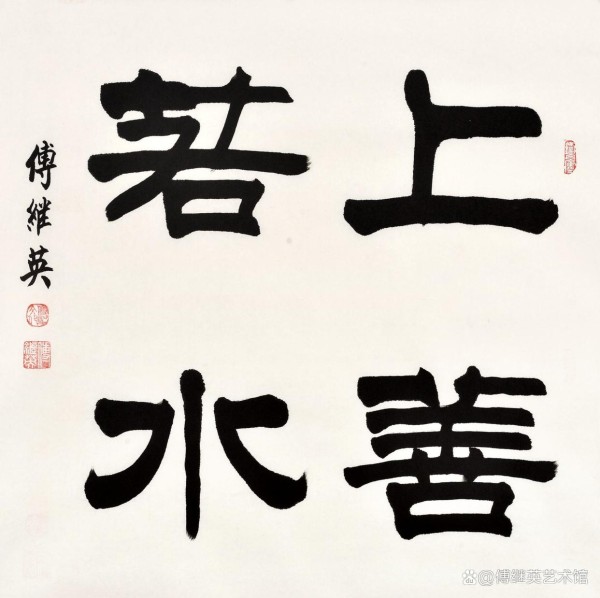 上善
若水
傅继英
@傅继英艺术馆